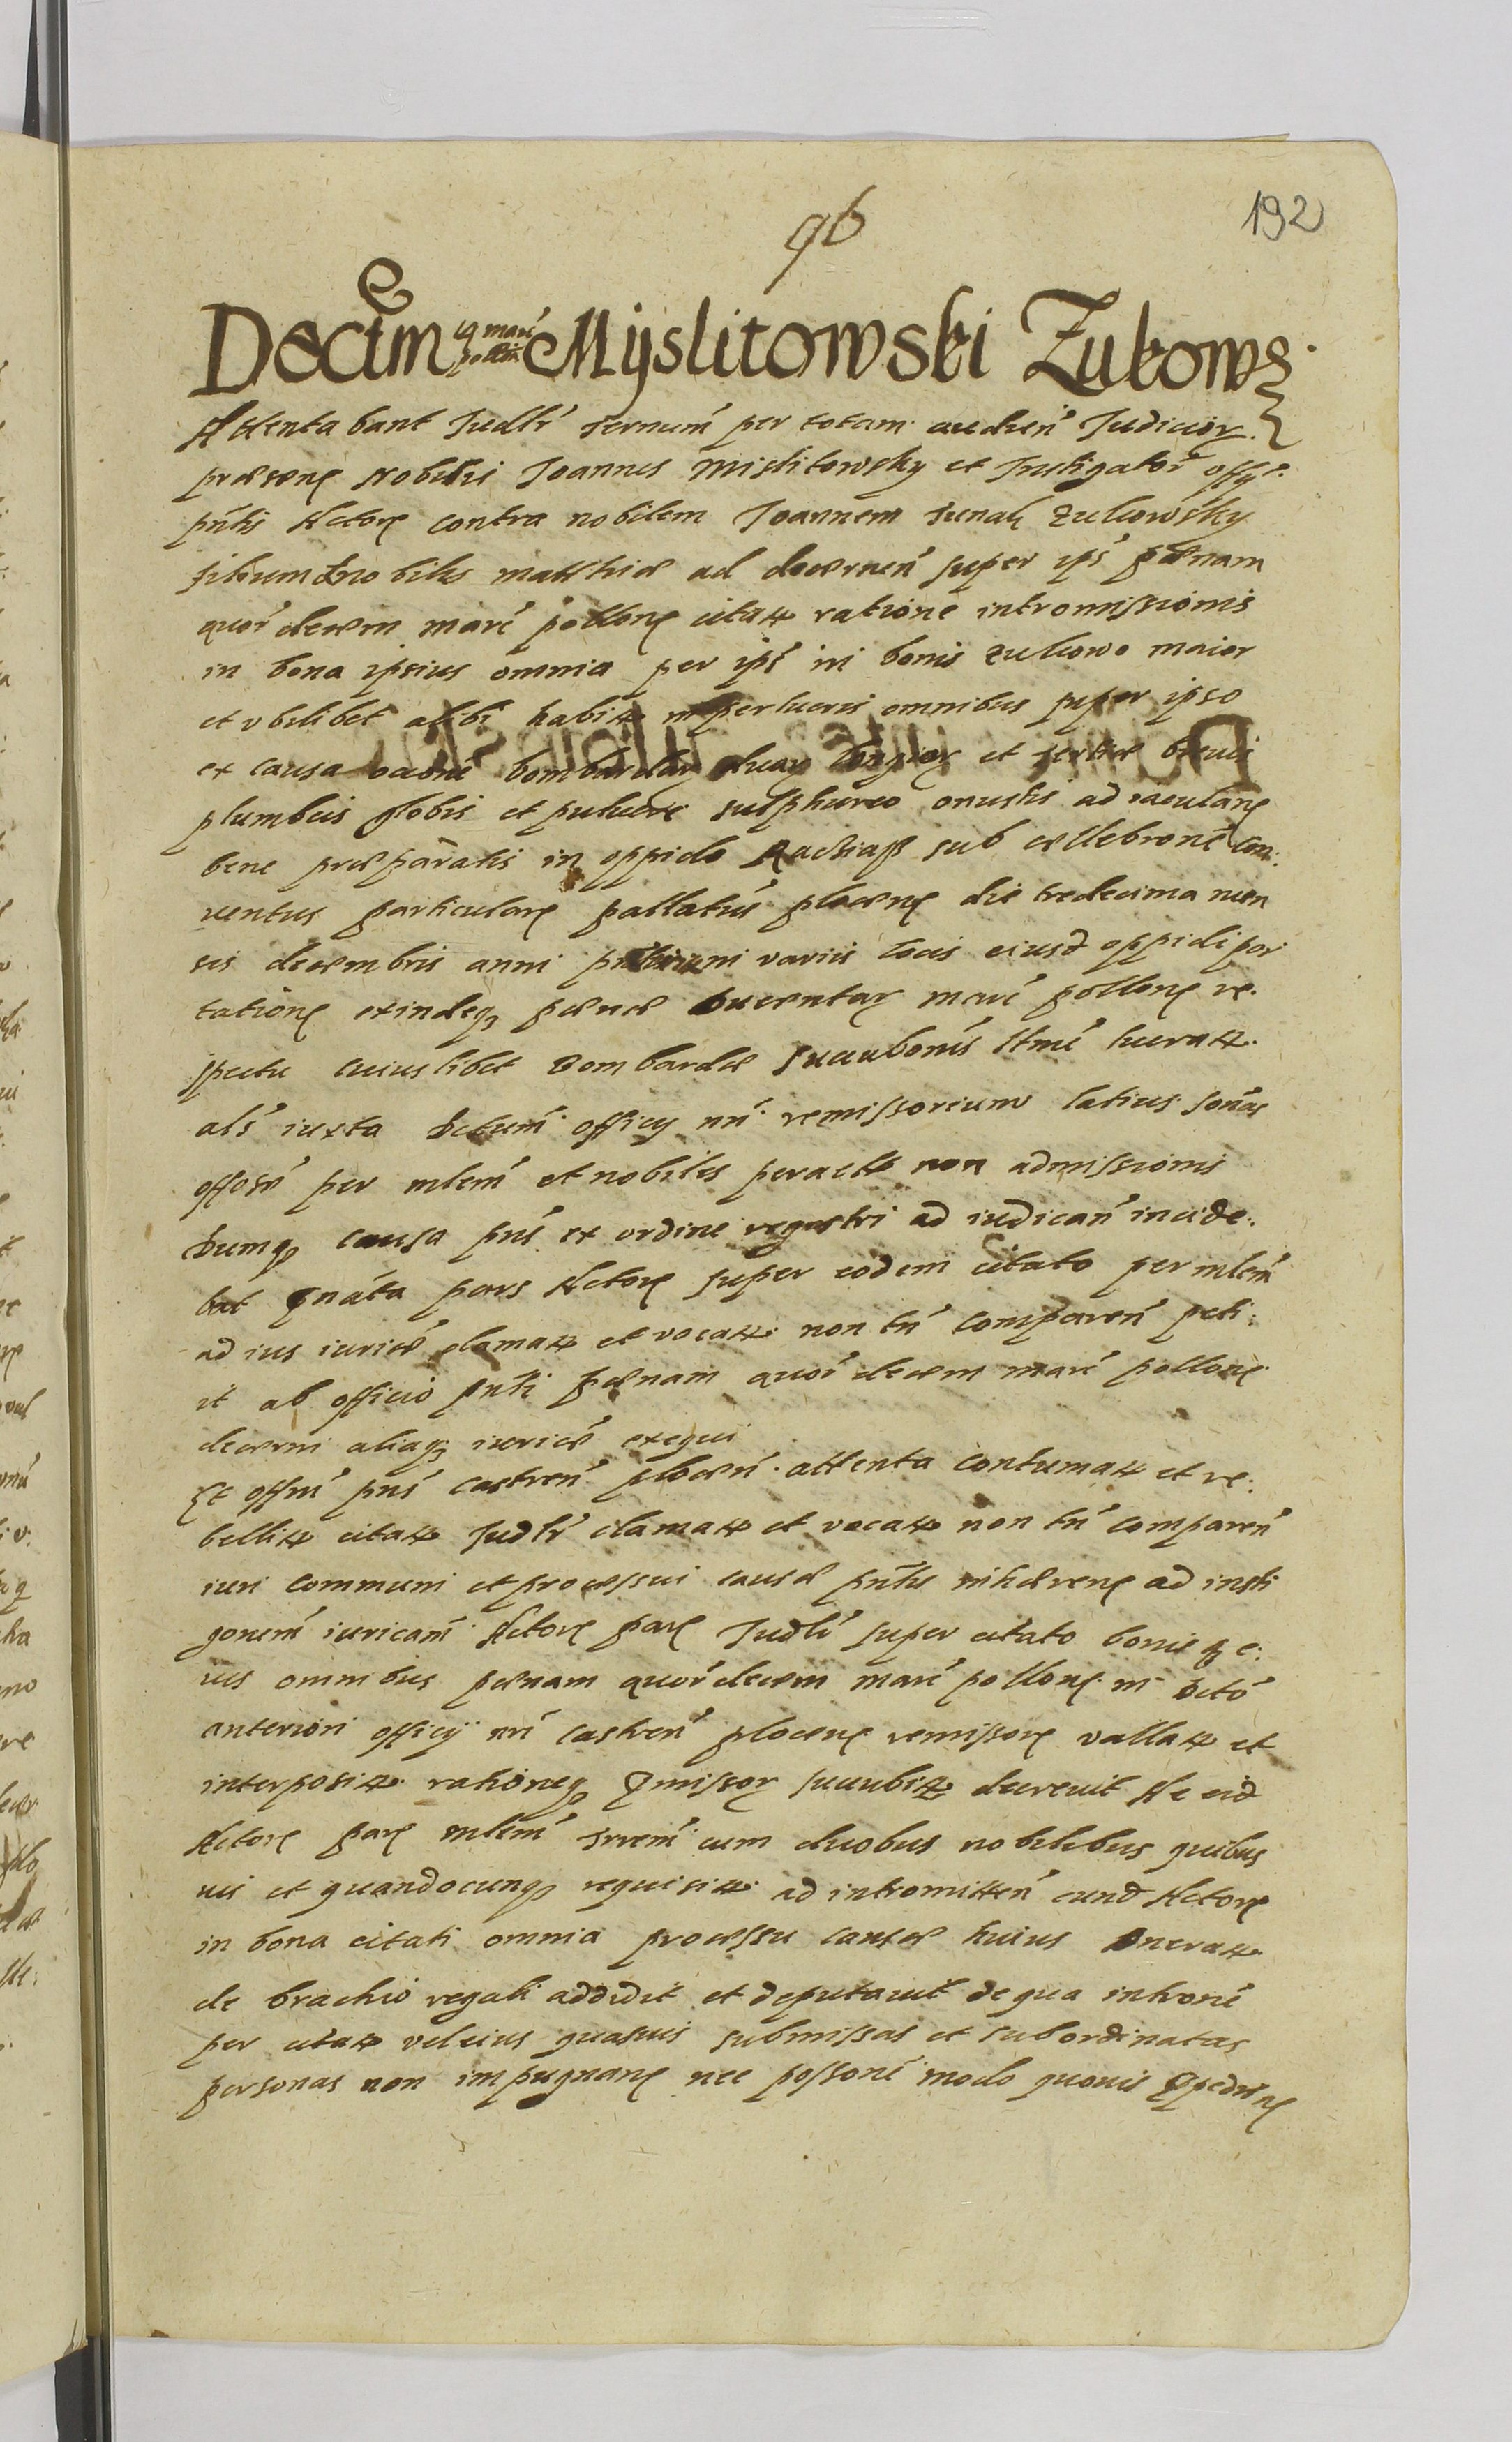 96
192
Decũm 14 marč pollon Myslitowski Zukows.
Attentabant Judlr ternum per totam audien Judicior
præsens Nobilis Joannes Mislitowsky et Instigator offy
pntis Actores contra nobilem Joannem Zukowsky
filium nobilis Matthiæ ad decernen super ips pœnam
quor decem marč pollon citat ratione intromissionis
in bona ipsius omnia per ips in bonis Zukowo maior
et vbilibet alibi habit in perlucris omnibus super ipso
ex causa bombardar duar longior et tertiæ breuis
plumbeis globis et puluere sulphureo onustis ad iaculan
bene præparatis in oppido Raciąß sub cellebrone con
ventus particular pallatus plocen die tredecima men
sis decembris anni variis locis eiusd oppidi por
tation exindeq pœnæ marč pollon re
spectu cuiuslibet bombardæ succubonis lucrat
als iuxta Dctum officy nri remissorium latius sonas
per mlem et nobiles peract non admissionis
Dumq causa pns ex ordine regestri ad iudican incide
bat pars Actor super eodem citato per mlem
ad ius iurice clamat et vocat non tn comparen peti
it ab officio pnti pœnam quor decem marč pollon
decerni aliaq iurice exequi
Et offm pns castren plocen attenta contumat et re
belli citat Judlr clamat et vocat non tn comparen
iuri communi et processui causæ pntis inhæren ad insti
gonem iuricam Actor par Judlr super citato bonisq e
ius omnibus pœnam quordecem marč pollon in dcto
anteriori officy nri castren plocen remissor vallat et
interposit rationeq pmissor succubit decreuit Ac eid
Actor par mlem trrem cum duobus nobilibus quibus
uis et quandocunq requisit ad intromitten eund Actor
in bona citati omnia processu causæ huius onerat
de brachio regali addidit et deputauit de qua introne
per citat vel eius quasuis submissas et subordinatas
personas non impugnan nec possone modo quouis